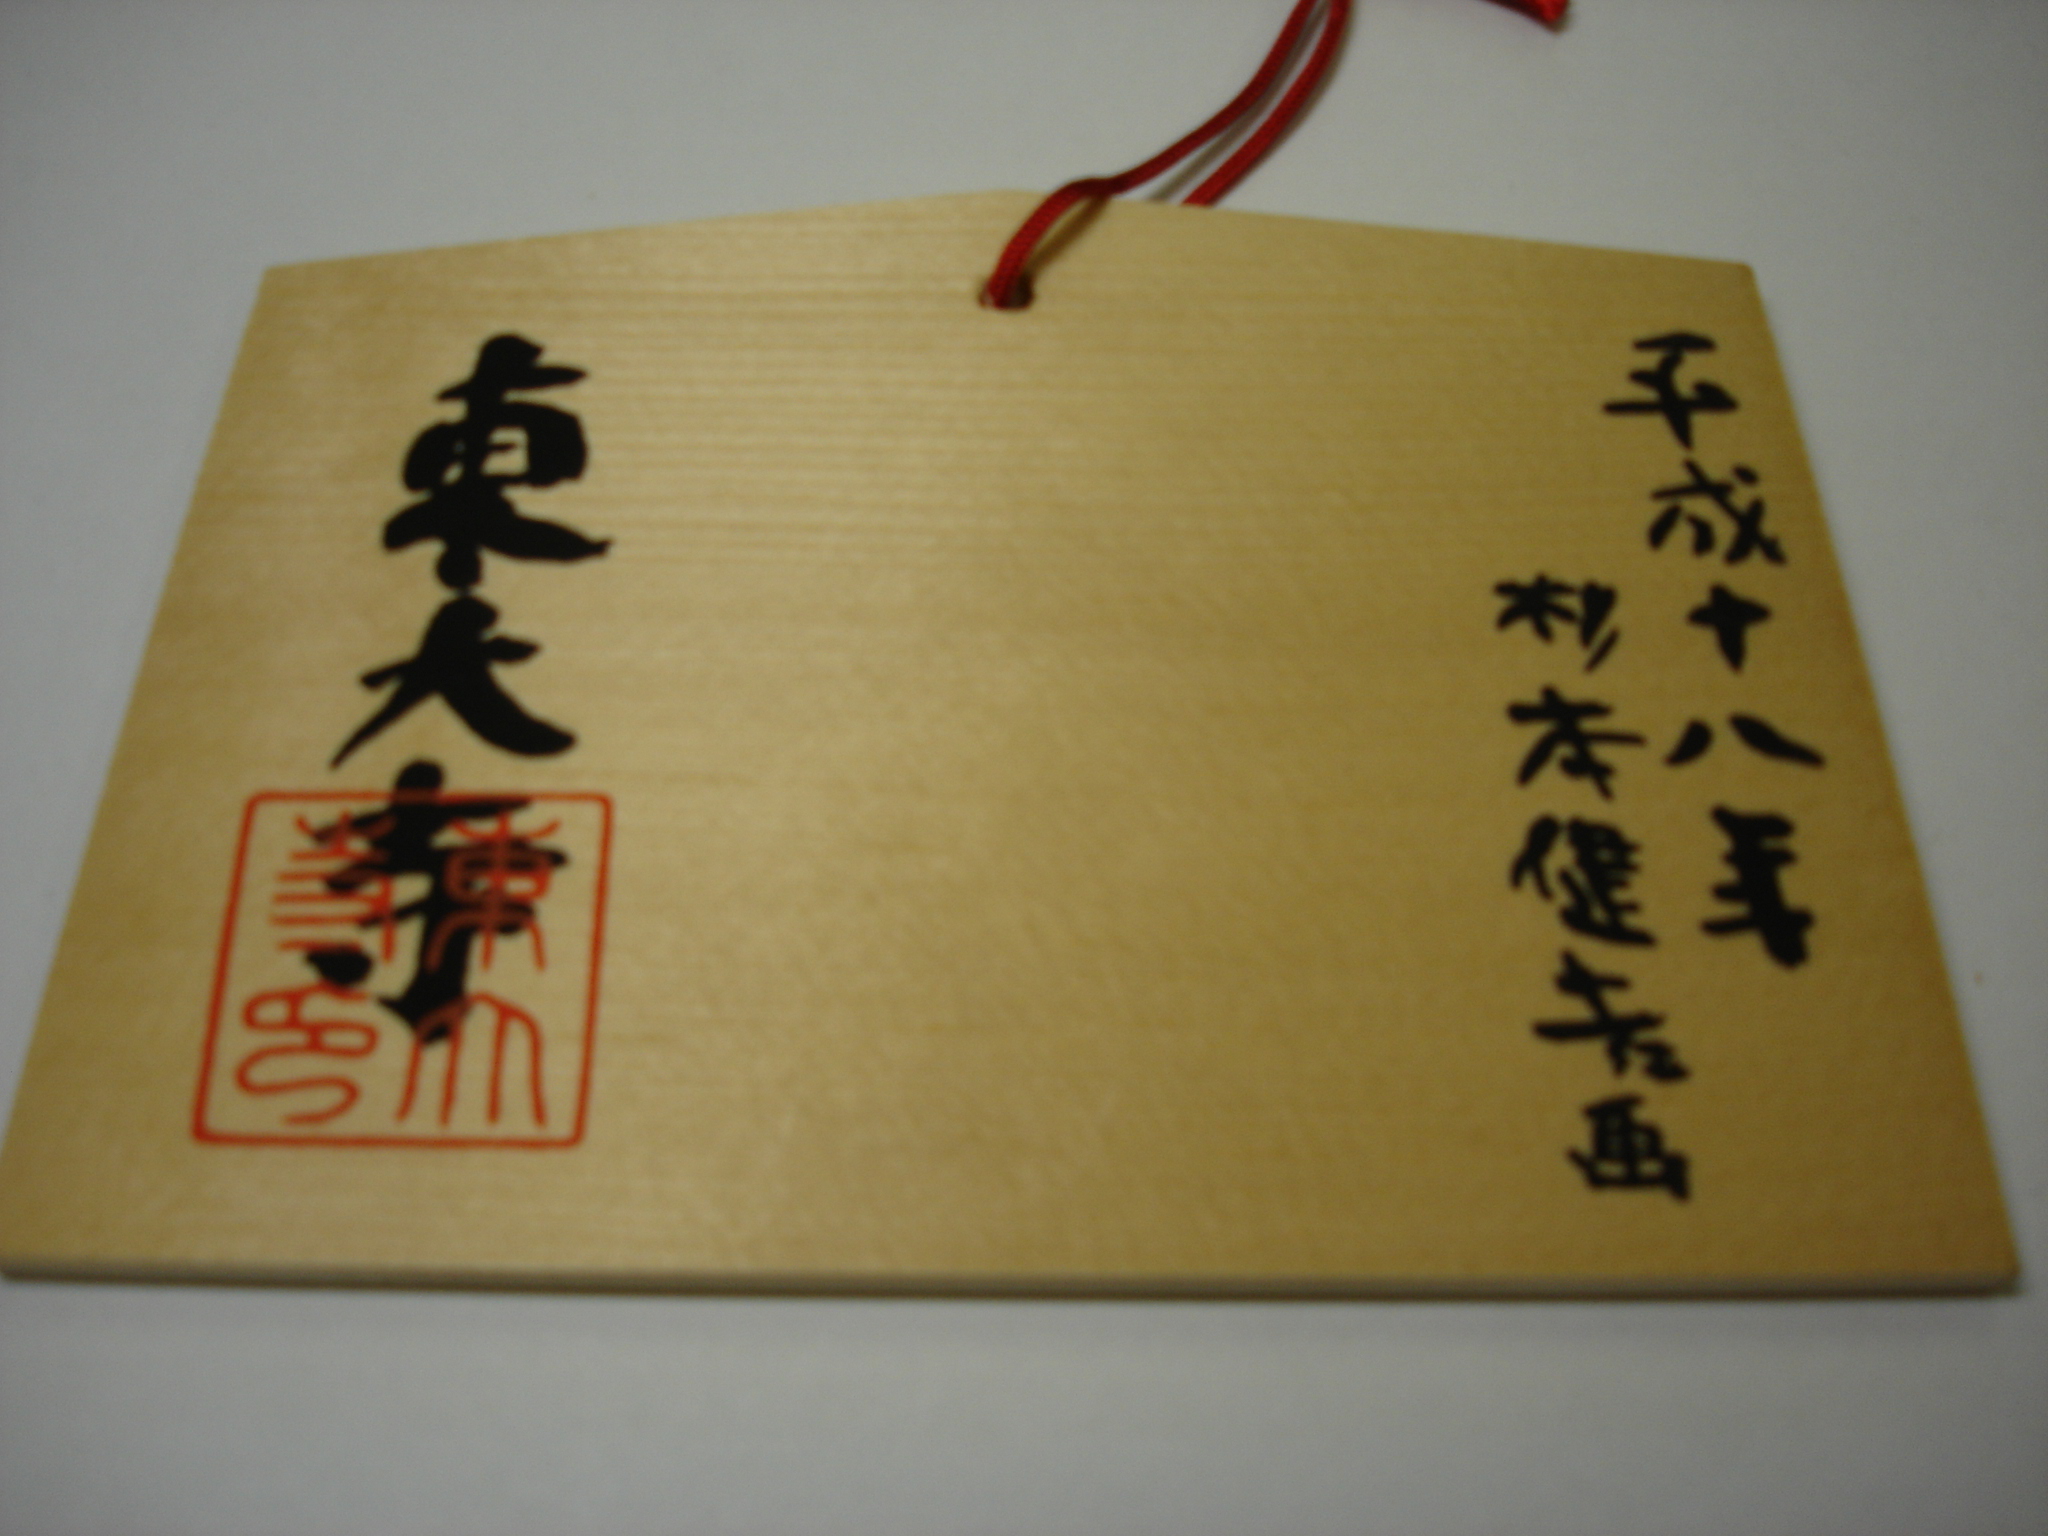 平成十八年
杉本健吉画
東大寺
東大寺印